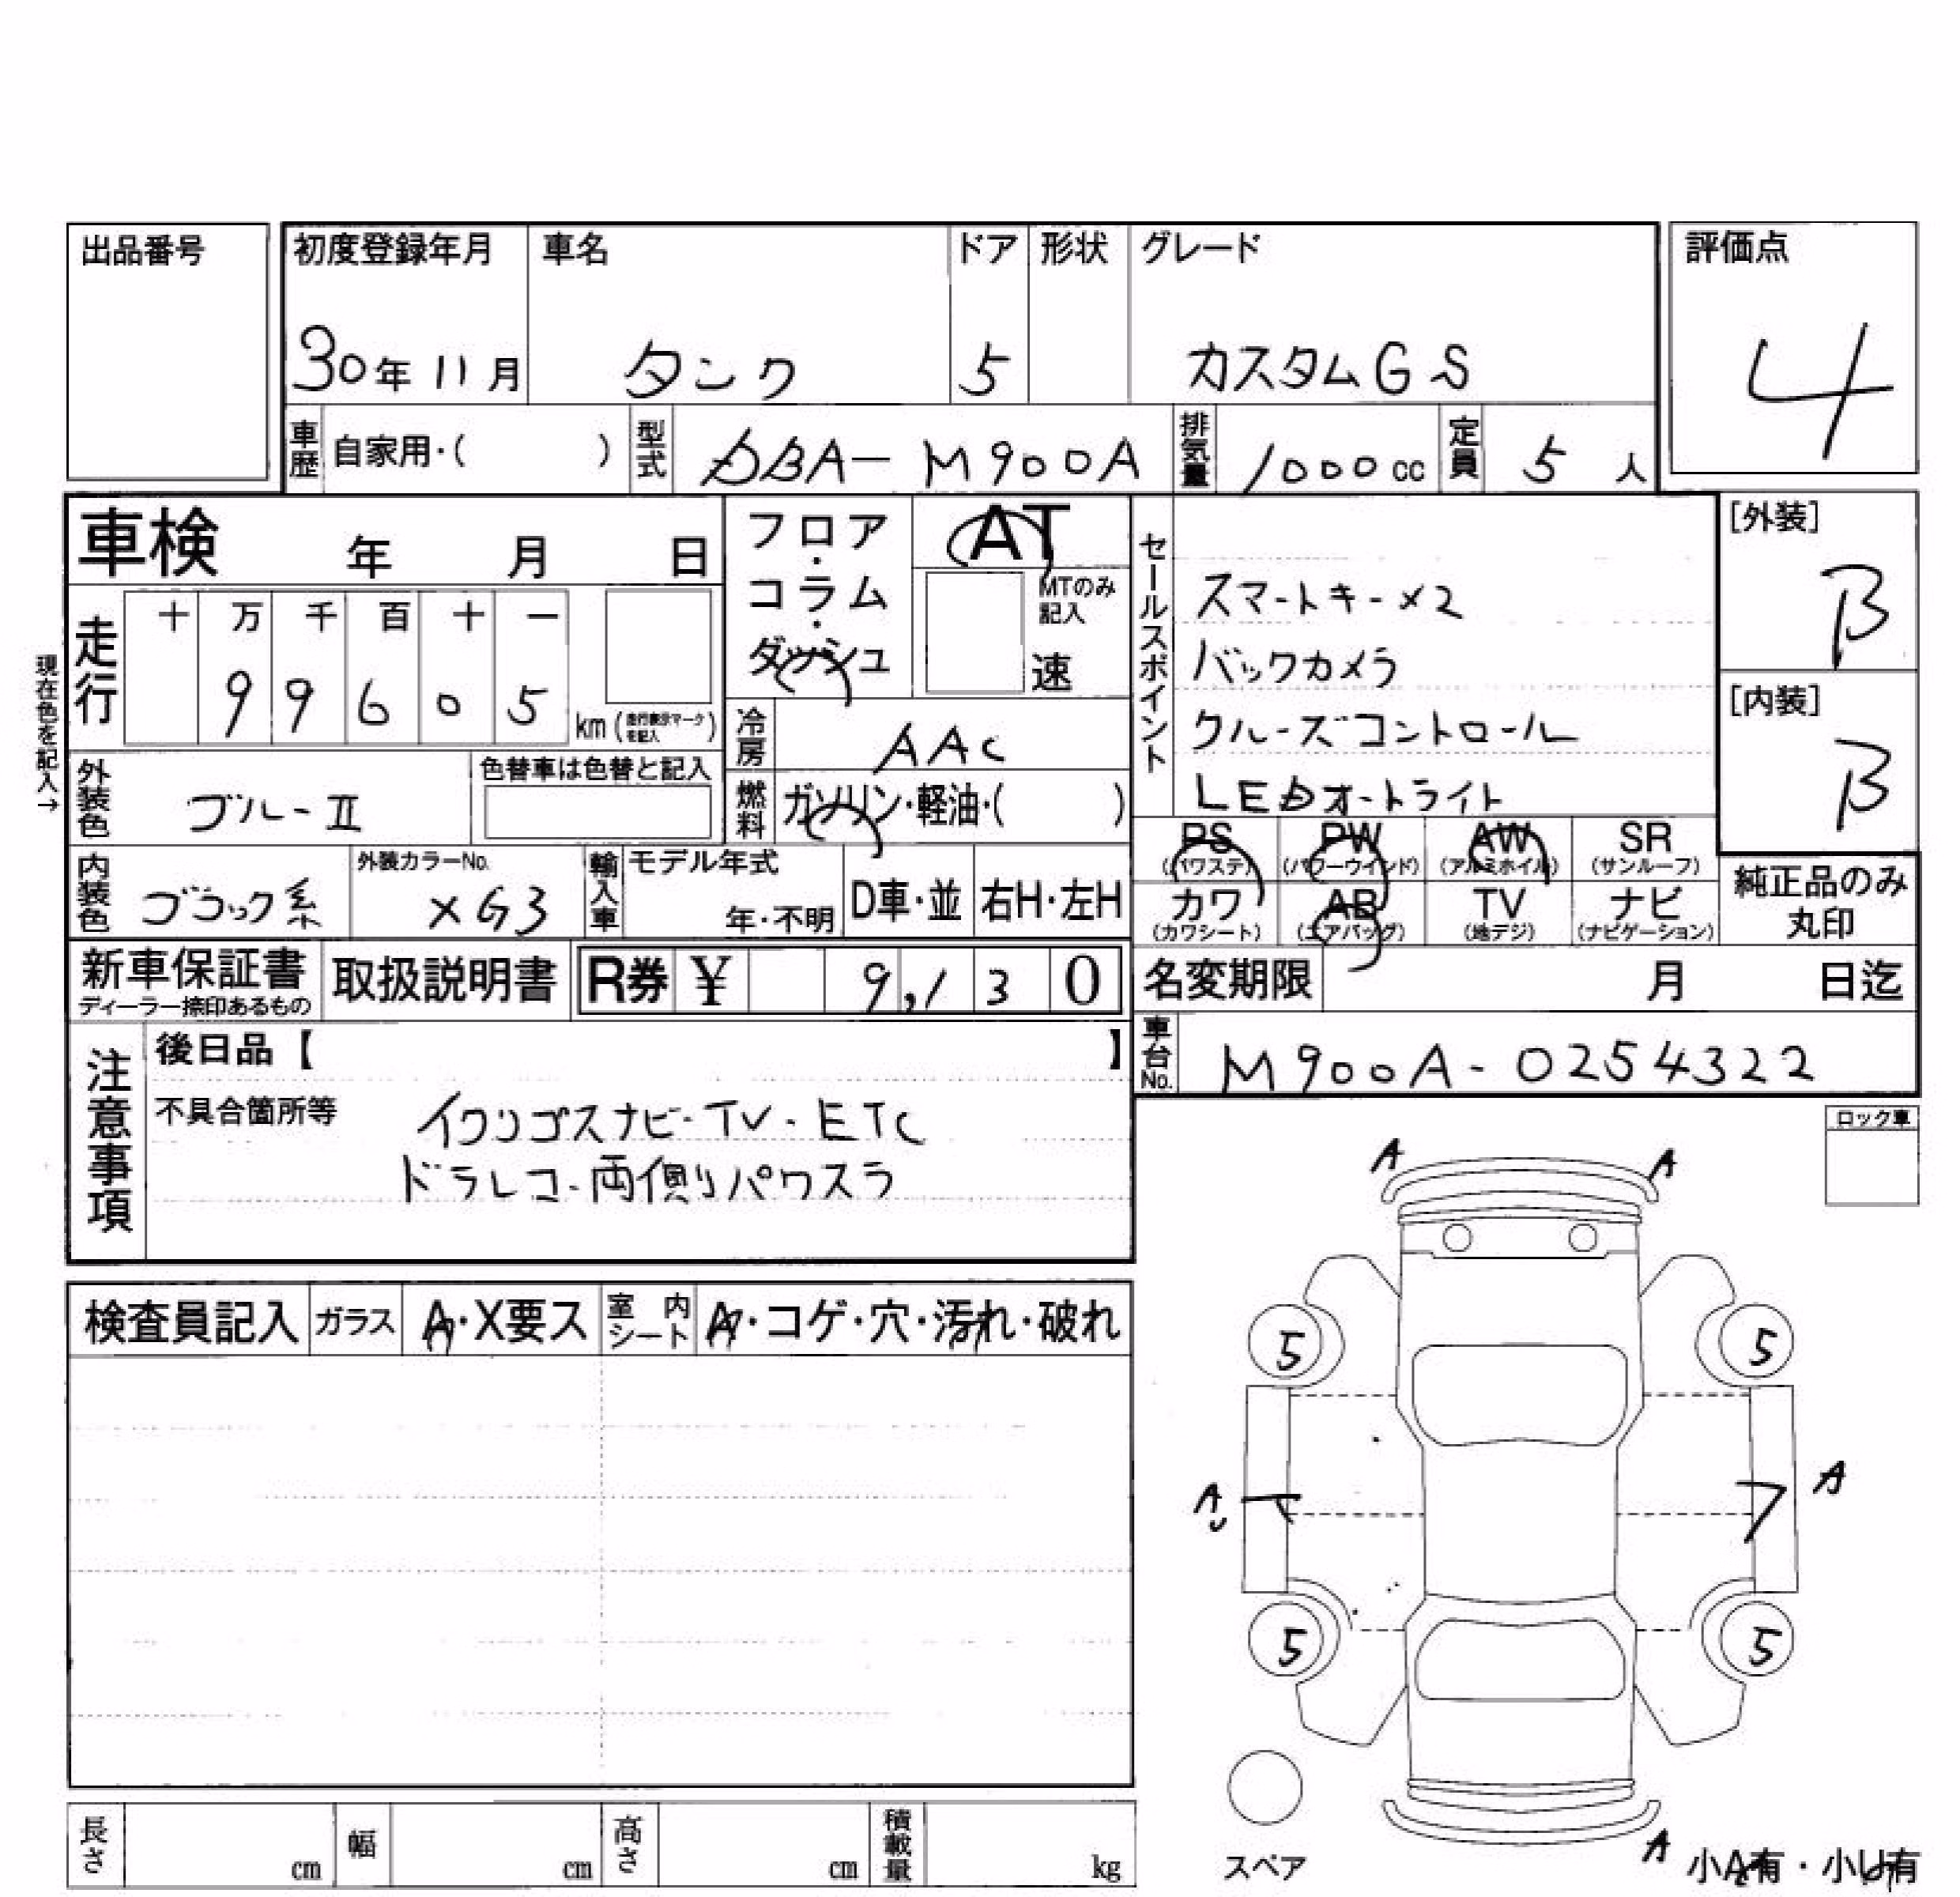 出品番号
初度登録年月 車名 ドア 形状 グレード 評価点
30年11月 タンク 5 カスタムGS 4
車歴 自家用・( ) 型式 DBA-M900A 排気量 1000cc 定員 5人
車検 年 月 日
フロア・コラム・ダッシュ
AT
MTのみ記入
速
現在色を記入→
走行 十 万 千 百 十 一
9 9 6 0 5 km (走行表示マークを記入)
冷房 AAC
燃料 ガソリン・軽油・( )
セールスポイント
スマートキー×2
バックカメラ
クルーズコントロール
LEDオートライト
[外装]
B
[内装]
B
外装色 ブルーII 色替車は色替と記入
内装色 ブラック系 外装カラーNo. XG3 輸入車 モデル年式 年・不明 D車・並 右H・左H
PS (パワステ) PW (パワーウインド) AW (アルミホイル) SR (サンルーフ)
カワ (カワシート) AB (エアバッグ) TV (地デジ) ナビ (ナビゲーション)
純正品のみ
丸印
新車保証書 ディーラー捺印あるもの 取扱説明書 R券 ¥ 9,130
名変期限 月 日迄
車台No. M900A-0254322
注意事項
後日品【 】
不具合箇所等 イクリプスナビ・TV・ETC
ドラレコ・両側パワスラ
ロック車
検査員記入 ガラス A・X要ス 室内シート A・コゲ・穴・汚れ・破れ
A A
5 5
A A
5 5
スペア
A
小A有・小U有
長さ cm 幅 cm 高さ cm 積載量 kg